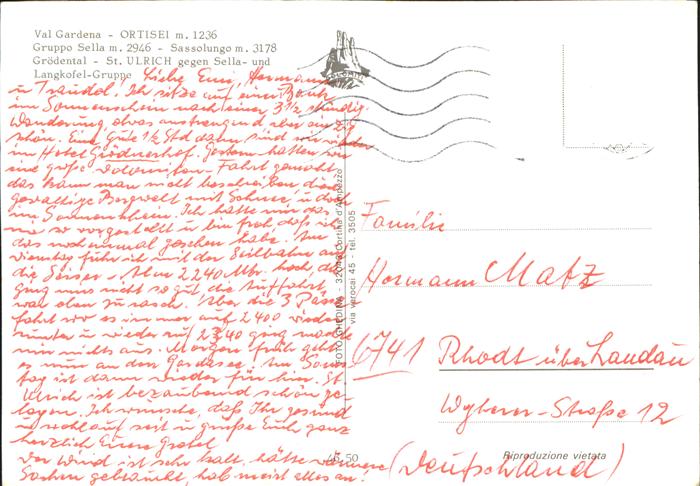 Val Gardena - ORTISEI m. 1236
Gruppo Sella m. 2946 - Sassolungo m. 3178
Grödental - St. ULRICH gegen Sella- und
Langkofel-Gruppe
Liebe Emi, Hermann
u Traudel! Ich sitze auf einer Bank
im Sonnenschein nach einer 3½ stündig.
Wanderung, etwas anstrengend aber
schön. Eine gute ½ Std dazu sind wir wieder
im Hotel Grödnerhof. Gestern hatten wir
eine große Dolomiten-Fahrt gemacht,
das kann man nicht beschreiben, diese
gewaltige Bergwelt mit Schnee, u doch
im Sonnenschein. Ich hätte mir das
nie so vorgestellt u bin froh daß ich
das noch einmal gesehen habe. Am
Dienstag fuhr ich mit der Seilbahn auf
die Seiser-Alm 2240 Mtr. hoch, da
ging mirs nicht so gut die Auffahrt
war eben zu rasch. Über die 3 Pässe
fahrt wo es immer auf 2400 wieder
runter u wieder auf 2340 ging machte
mir nichts aus. Morgen früh geht
es nun an den Gardasee. Am Sonn-
tag ist dann wieder für hier. St.
Ulrich ist bezaubernd schön ge-
legen. Ich wünsche, daß Ihr gesund
u wohlauf seit u grüße Euch ganz
herzlich Euere Gretel
Der Wind ist sehr kalt, hätte wärmere
Sachen gebraucht, hab meist alles an.
FOTO GHEDINA - 32043 Cortina d'Ampezzo
via verocai 45 - tel. 3505
Familie
Hermann Matz
6741 Rhodt über Landau
Weyherer-Straße 12
(Deutschland)
46.50
Riproduzione vietata